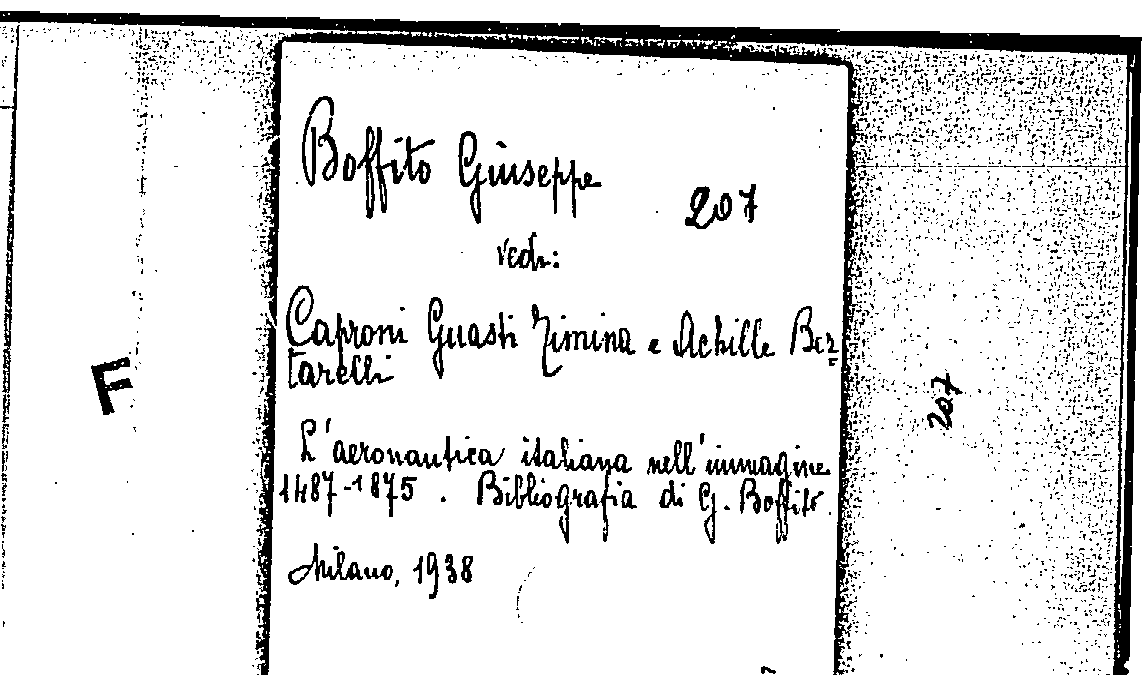 Boffito Giuseppe
207
vedi:
Caproni Guasti Timina e Achille Ber
tarelli
L'aeronautica italiana nell'immagine
1487-1875. Bibliografia di G. Boffito.
Milano, 1938
F
207